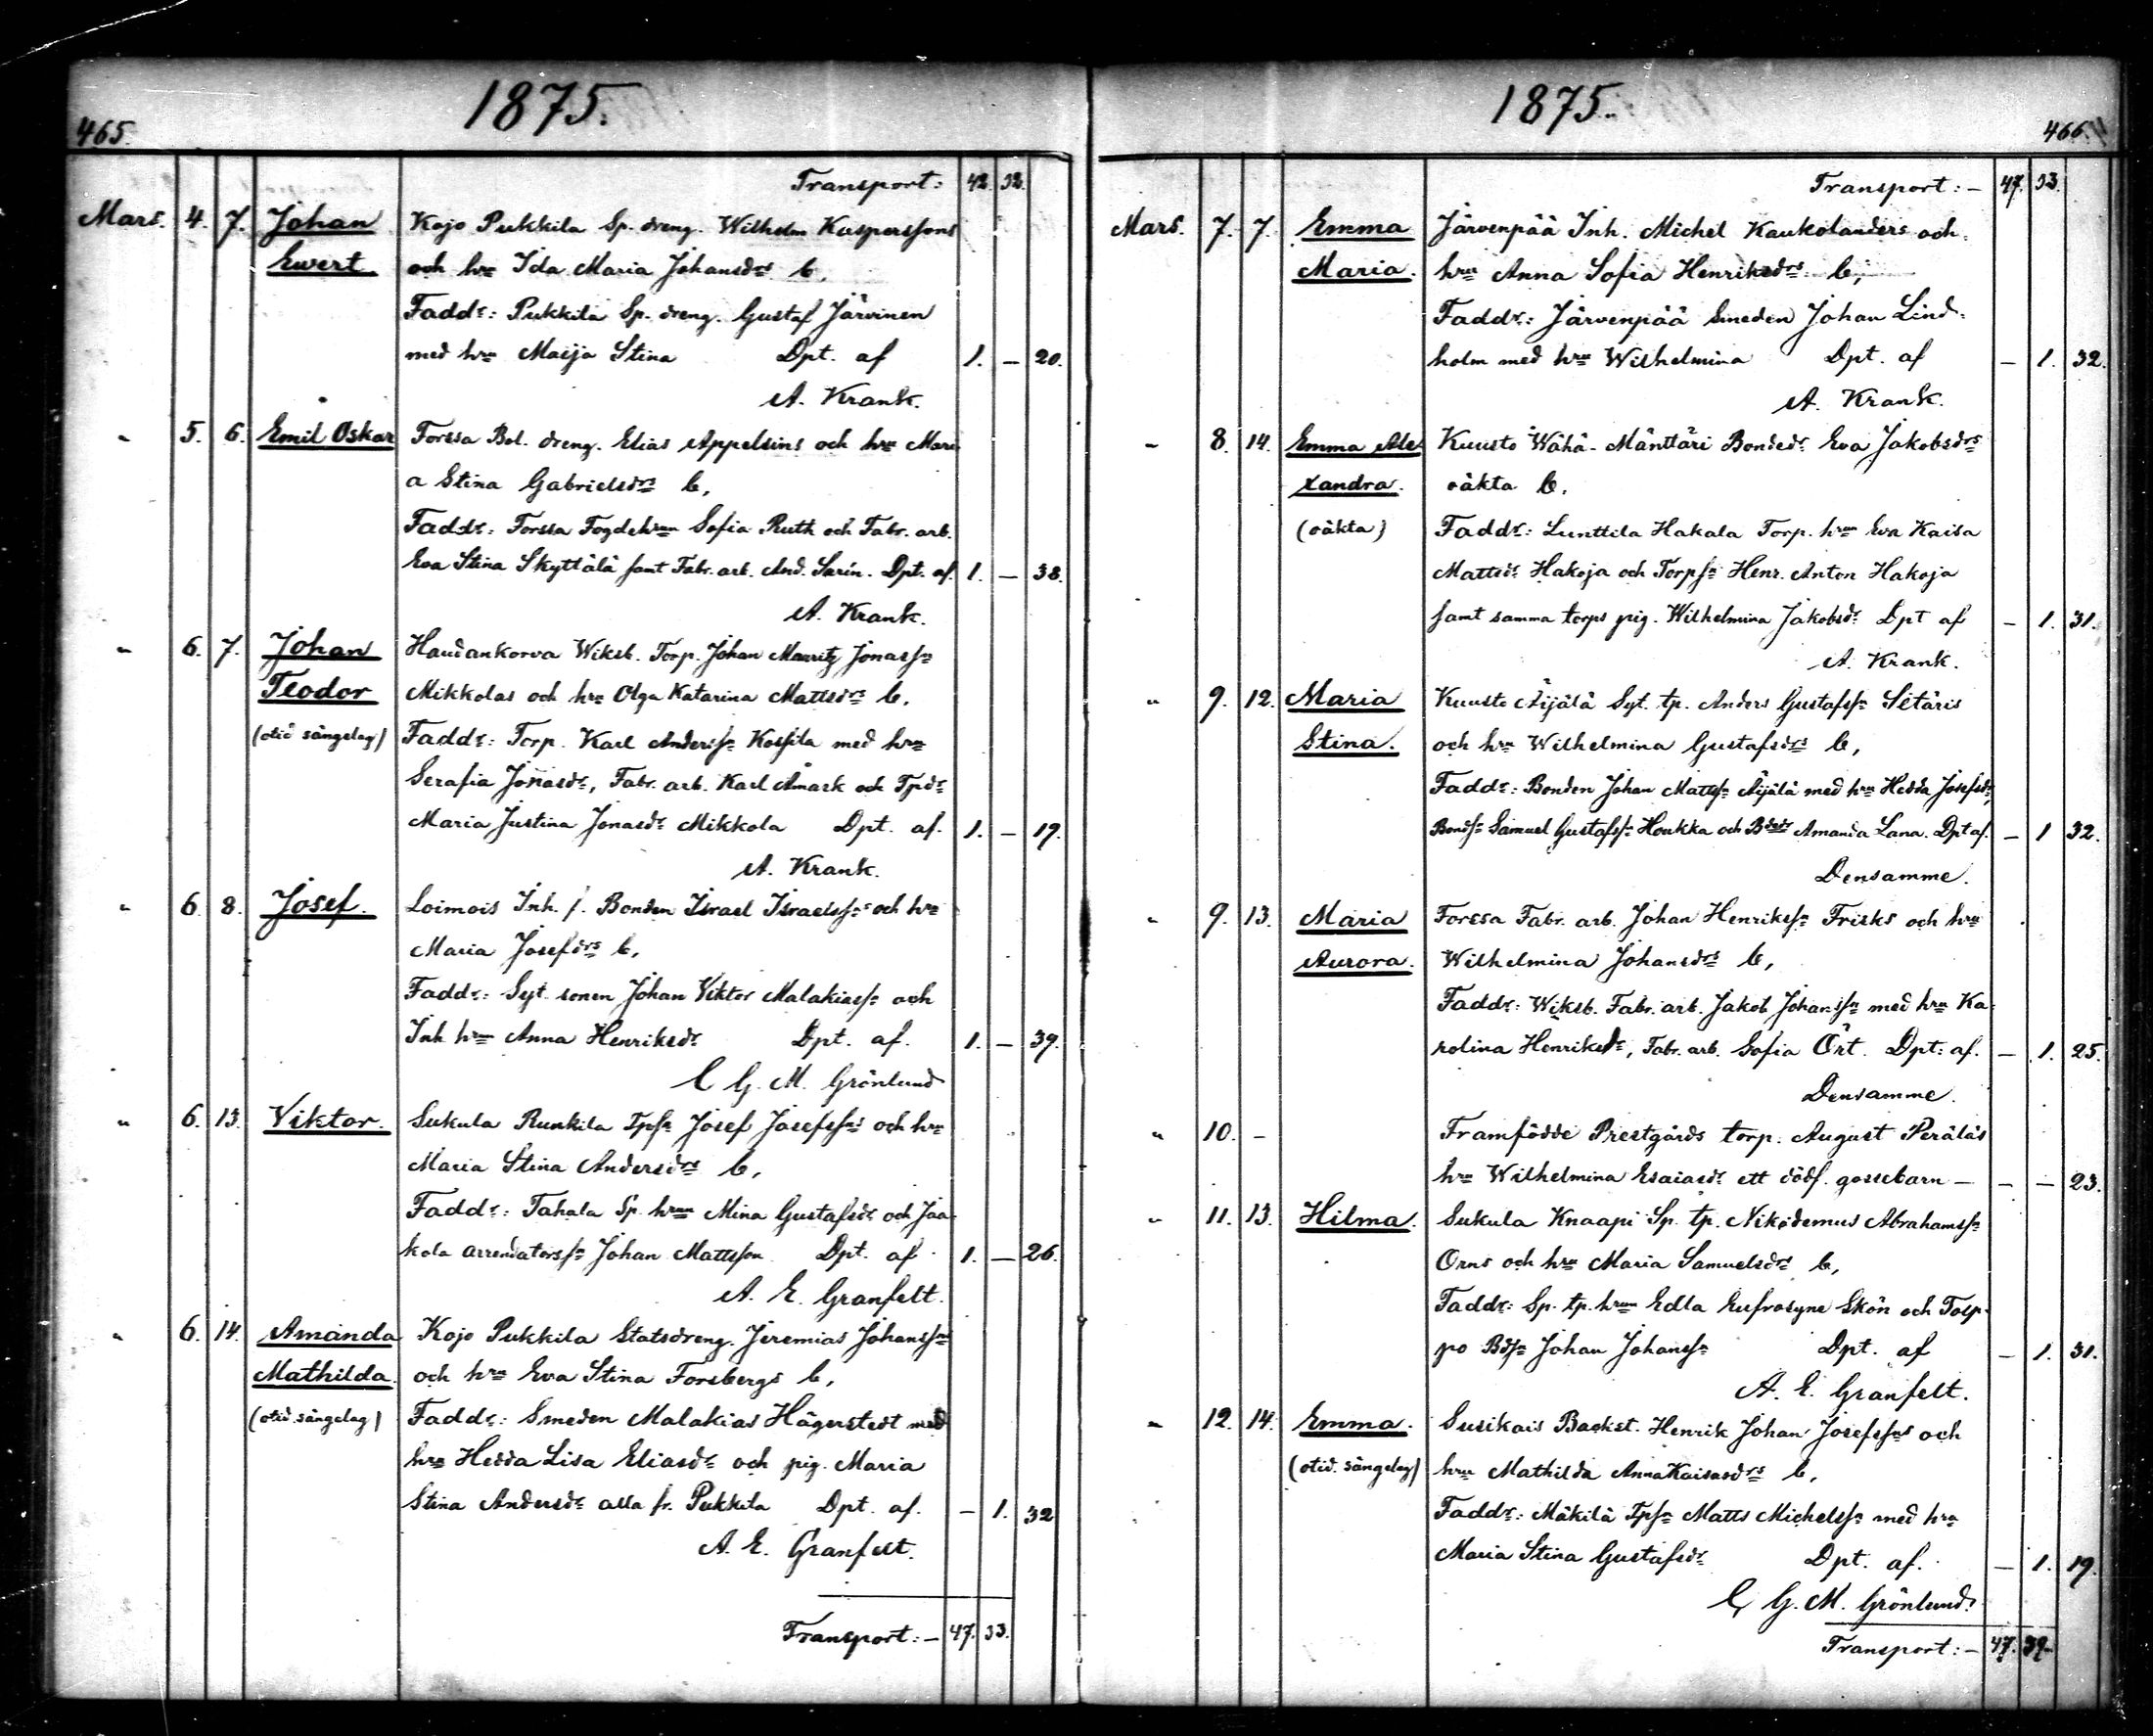 465.
1875.
Transport: 42. 32.
Mars. 4. 7. Johan Kojo Pukkila Sp. dreng. Wilhelm Kaspersons
Ewert och hru Ida Maria Johansdrs b,
Faddr: Pukkila Sp. dreng. Gustaf Järvinen
med hru Maija Stina Dpt. af 1. — 20.
A. Krank.
" 5. 6. Emil Oskar Forssa Bol. dreng. Elias Appelsins och hru Mari
a Stina Gabrielsdrs b,
Faddr: Forssa Fogdehrun Sofia Ruth och Fabr. arb.
Eva Stina Skyttälä samt Fabr. arb. And. Sarin. Dpt. af. 1. — 38.
A. Krank.
" 6. 7. Johan Haudankorva Wiksb. Torp. Johan Mauritz Jonassn
Teodor Mikkolas och hru Olga Katarina Mattsdrs b,
(otid. sängelag) Faddr: Torp. Karl Anderssn Kossila med hru
Serafia Jonasdr, Fabr. arb. Karl Åmark och Tpdr
Maria Justina Jonasdr Mikkola Dpt. af. 1. — 19.
A. Krank.
" 6. 8. Josef. Loimois Inh. f. Bonden Israel Israelssns och hru
Maria Josefdrs b,
Faddr: Syt. sonen Johan Viktor Malakiassn och
Inh hru Anna Henriksdr Dpt. af. 1. — 39.
C G. M. Grönlund
" 6. 13. Viktor. Sukula Runkila Tpsn Josef Josefssns och hru
Maria Stina Andersdrs b,
Faddr: Tahala Sp. hrun Mina Gustafsdr och Jaa-
kola arrendatorssn Johan Mattsson Dpt. af 1. — 26.
A. E. Granfelt.
" 6. 14. Amanda Kojo Pukkila Statsdreng. Jeremias Johanssns
Mathilda. och hru Eva Stina Forsbergs b,
(otid. sängelag) Faddr: Smeden Malakias Hägerstedt med
hru Hedda Lisa Eliasdr och pig. Maria
Stina Andersdr alla fr. Pukkila Dpt. af. — 1. 32
A. E. Granfelt.
Transport: — 47. 33.
1875.
466.
Transport: — 47. 33.
Mars. 7. 7. Emma Järvenpää Inh. Michel Kaukolanders och
Maria. hru Anna Sofia Henriksdrs b,
Faddr: Järvenpää Smeden Johan Lind-
holm med hru Wilhelmina Dpt. af — 1. 32.
A. Krank.
" 8. 14. Emma Ale- Kuusto Wähä-Mänttäri Bondedr Eva Jakobsdrs
xandra. oäkta b.
(oäkta) Faddr: Lunttila Hakala Torp. hru Eva Kaisa
Mattsdr Hakoja och Torpsn Henr. Anton Hakoja
samt samma torps pig. Wilhelmina Jakobsdr Dpt af — 1. 31.
A. Krank.
" 9. 12. Maria Kuusto Äijälä Syt. tp. Anders Gustafssn Sitäris
Stina. och hru Wilhelmina Gustafsdrs b,
Faddr: Bonden Johan Mattssn Äijälä med hru Hedda Josefsdr,
Bondsn Samuel Gustafssn Houkka och Bdedr Amanda Lana. Dpt af. — 1 32.
Densamme.
" 9. 13. Maria Forssa Fabr. arb. Johan Henrikssn Frisks och hru
Aurora. Wilhelmina Johansdrs b,
Faddr: Wiksb. Fabr. arb. Jakob Johanssn med hru Ka-
rolina Henriksdr, Fabr. arb. Sofia Ört. Dpt. af. — 1. 25.
Densamme.
" 10. — Framfödde Prestgårds torp. August Peräläs
hru Wilhelmina Esaiasdr ett dödf. gossebarn — — — 23.
" 11. 13. Hilma. Sukula Knaapi Sp. tp. Nikodemus Abrahamssn
Orns och hru Maria Samuelsdrs b,
Faddr: Sp. tp. hrun Edla Eufrosyne Skön och Torp-
po Bdsn Johan Johanssn Dpt. af — 1. 31.
A. E. Granfelt.
" 12. 14. Emma. Susikais Backst. Henrik Johan Josefssns och
(otid. sängelag) hru Mathilda AnnaKaisasdrs b,
Faddr: Mäkilä Tpsn Matts Michelssn med hru
Maria Stina Gustafsdr Dpt. af. — 1. 19.
C G. M. Grönlund.
Transport: — 47. 39.